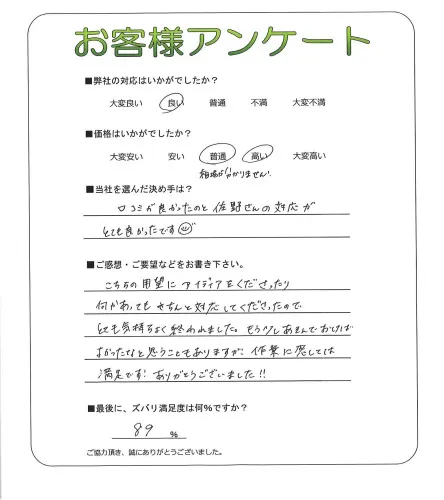 お客様アンケート
■弊社の対応はいかがでしたか?
大変良い 良い 普通 不満 大変不満
■価格はいかがでしたか?
大変安い 安い 普通 高い 大変高い
相場は分かりません。
■当社を選んだ決め手は?
口コミが良かったのと佐野さんの対応が
とても良かったです
■ご感想・ご要望などをお書き下さい。
こちらの用望にアイディアをくださったり
何かあってもきちんと対応してくださったので
とても気持ちよく終われました。もう少し
よかったなと思うこともありますが、作業に応しては
満足です!ありがとうございました!!
■最後に、ズバリ満足度は何%ですか?
89 %
ご協力頂き、誠にありがとうございました。